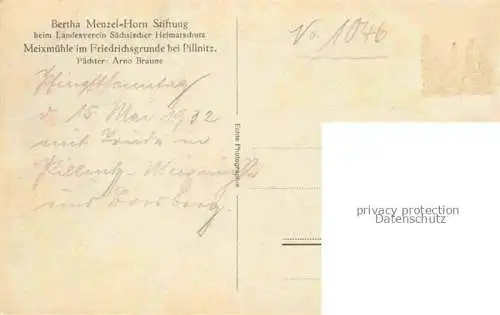 Bertha Menzel-Horn Stiftung
beim Landesverein Sächsischer Heimatschutz
Meixmühle im Friedrichsgrunde bei Pillnitz.
Pächter: Arno Braune
Pfingstsonntag
d. 15. Mai 1932
mit
Pillnitz-Meixmühle
und Borsberg.
Echte Photographie
1046
privacy protection
Datenschutz